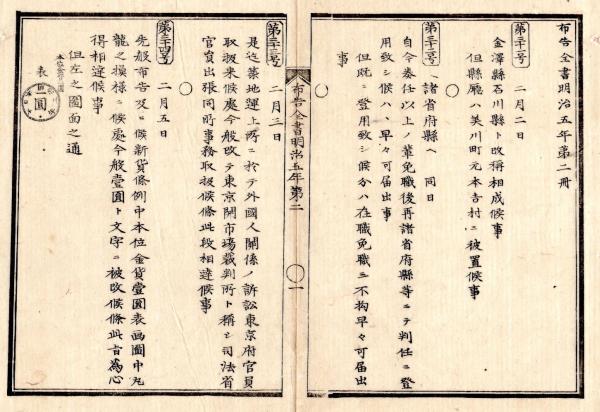 布告全書明治五年第二冊
第三十二号 二月二日
金澤縣石川縣ト改稱相成候事
但縣廳ハ美川町元本吉村ニ被置候事
第三十三号 諸省府縣ヘ 同日
自今奏任以上ノ輩免職後再諸省府縣等ニテ判任ニ登
用致シ候ハ、早々可届出事
但既ニ登用致シ候分ハ在職免職ニ不拘早々可届出
事
布告全書明治五年第二
一
二月三日
是迠築地運上所ニ於テ外國人關係ノ訴訟東京府官員
取扱来候處今般改テ東京開市場裁判所ト稱シ司法省
官員出張同所事務取扱候條此段相達候事
第三十四号 二月五日
先般布告及ヒ候新貨條例中本位金貨壹圓表画圖中九
龍之摸様ニ候處今般壹圓ト文字ニ被改候條此旨為心
得相達候事
但左之圖面之通
表
圓